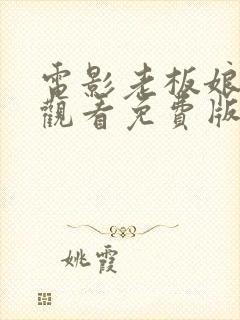 電影老板娘
觀看免費版
姚霞